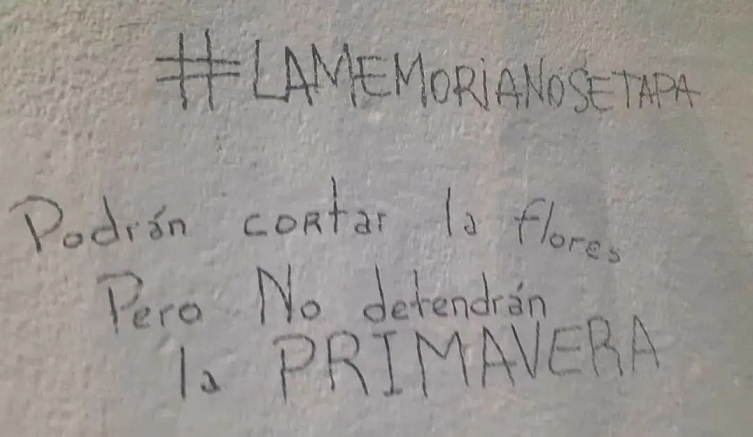 #LAMEMORiANOSETAPA
Podrán cortar la flores
Pero No detendrán
la PRIMAVERA